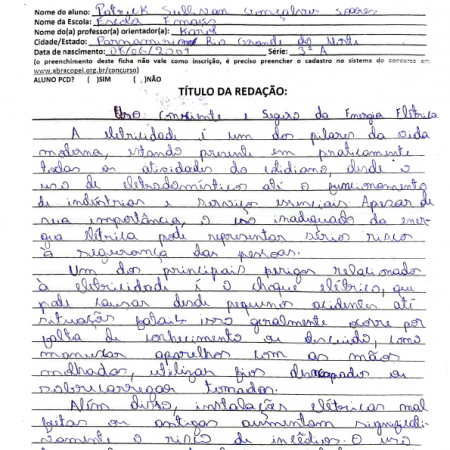 Nome do aluno: Patrick Sullivan Gonçalves soares
Nome da Escola: Escola Emaus
Nome do(a) professor(a) orientador(a): Karol
Cidade/Estado: Parnamirim Rio Grande do Norte
Data de nascimento: 08/06/2009 Série: 3º A
(o preenchimento deste ficha não vale como inscrição, é preciso preencher o cadastro no sistema do concurso em
www.abracopel.org.br/concurso)
ALUNO PCD? ( )SIM ( )NÃO
TÍTULO DA REDAÇÃO:
Uso Consciente e Seguro da Energia Elétrica
A eletricidade é um dos pilares da vida
moderna, estando presente em praticamente
todas as atividades do cotidiano, desde o
uso de eletrodomésticos até o funcionamento
de indústrias e serviços essenciais. Apesar de
sua importância, o uso inadequado da ener-
gia elétrica pode representar sérios riscos
à segurança das pessoas.
Um dos principais perigos relacionados
à eletricidade é o choque elétrico, que
pode causar desde pequenos acidentes até
situações fatais. isso geralmente ocorre por
falta de conhecimento ou descuido, como
manusear aparelhos com as mãos
molhadas, utilizar fios desencapados ou
sobrecarregar tomadas.
Além disso, instalações elétricas mal
feitas ou antigas aumentam significati-
vamente o risco de incêdios. O uso